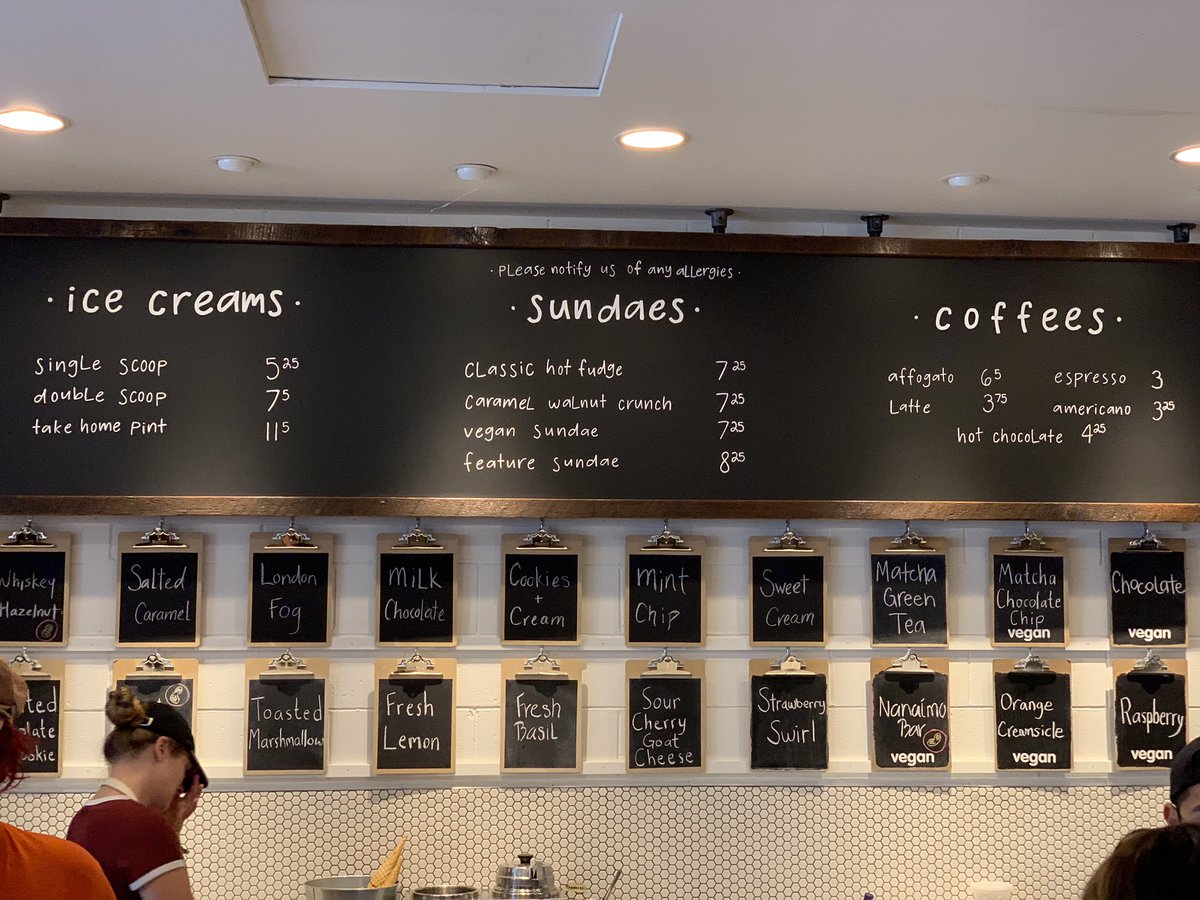 · Please notify us of any allergies ·
· ice creams ·
single scoop 5 25
double scoop 7 5
take home pint 11 5
· sundaes ·
classic hot fudge 7 25
caramel walnut crunch 7 25
vegan sundae 7 25
feature sundae 8 25
· coffees ·
affogato 6 5 espresso 3
Latte 3 75 americano 3 25
hot chocolate 4 25
Whiskey
Hazelnut
Salted
Caramel
London
Fog
Milk
Chocolate
Cookies
+
Cream
Mint
Chip
Sweet
Cream
Matcha
Green
Tea
Matcha
Chocolate
Chip
vegan
Chocolate
vegan
Toasted
Marshmallow
Fresh
Lemon
Fresh
Basil
Sour
Cherry
Goat
Cheese
Strawberry
Swirl
Nanaimo
Bar
vegan
Orange
Creamsicle
vegan
Raspberry
vegan